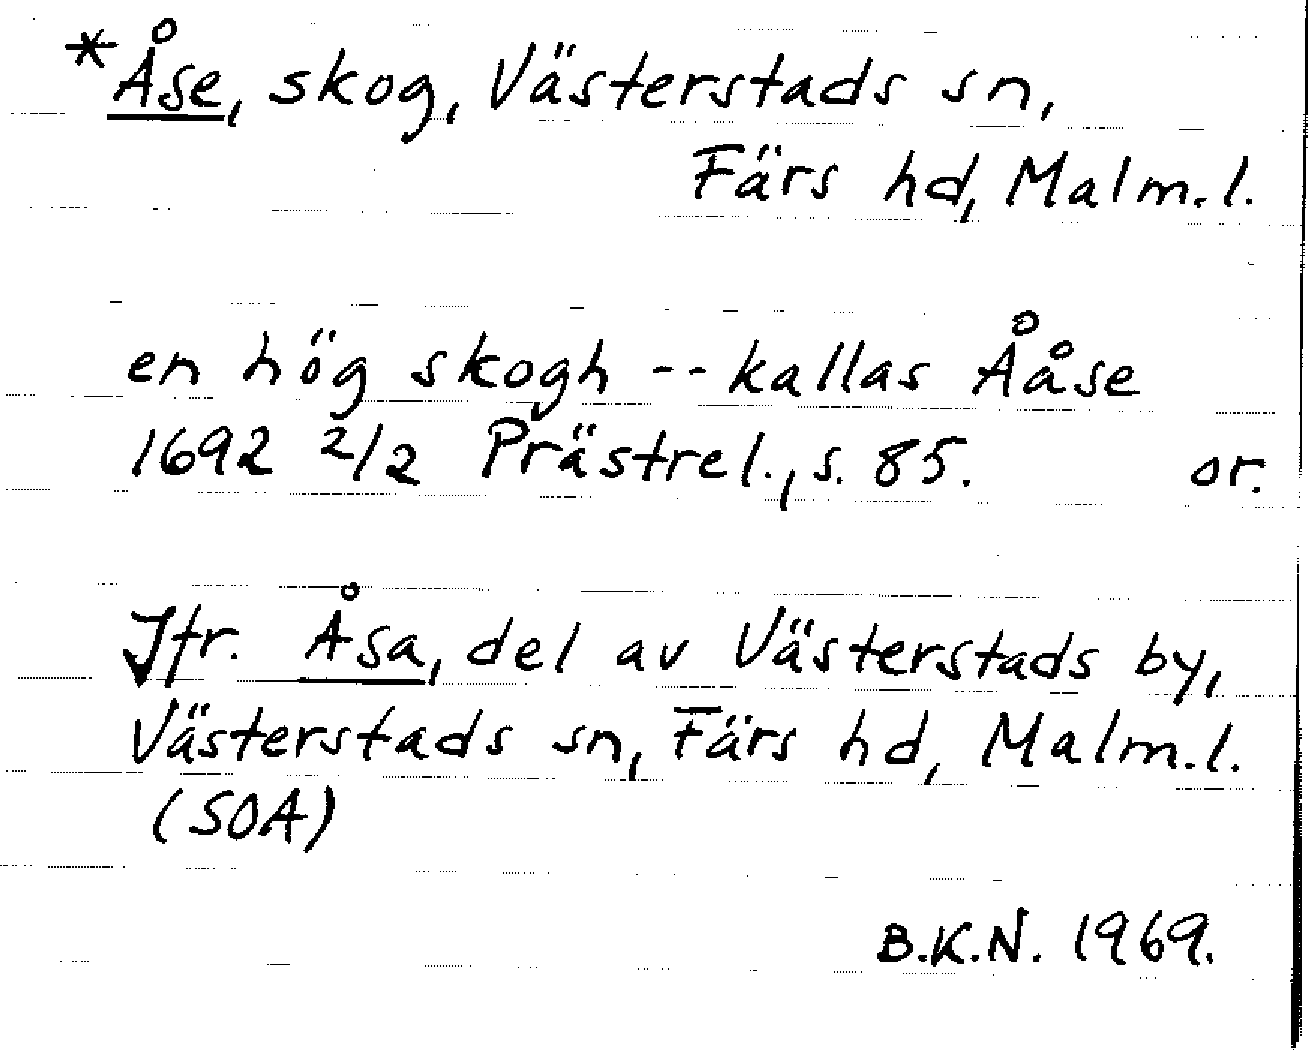 *Åse, skog, Västerstads sn,
Färs hd, Malm.l.
en hög skogh -- kallas Ååse
1692 2/2 Prästrel., s. 85. or.
Jfr. Åsa, del av Västerstads by,
Västerstads sn, Färs hd, Malm.l.
(SOA)
B.K.N. 1969.